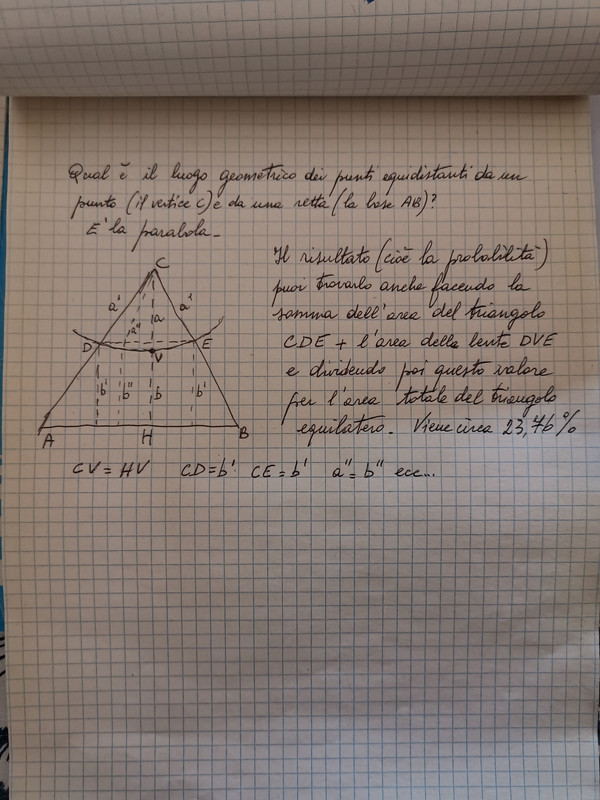 Qual è il luogo geometrico dei punti equidistanti da un
punto (il vertice C) e da una retta (la base AB)?
E' la parabola.
Il risultato (cioè la probabilità)
puoi trovarlo anche facendo la
somma dell'area del triangolo
CDE + l'area della lente DVE
e dividendo poi questo valore
per l'area totale del triangolo
equilatero. Viene circa 23,46%
C
a' a'' a a'
D V E
b' b'' b b'
A H B
CV = HV CD = b' CE = b' a'' = b'' ecc...